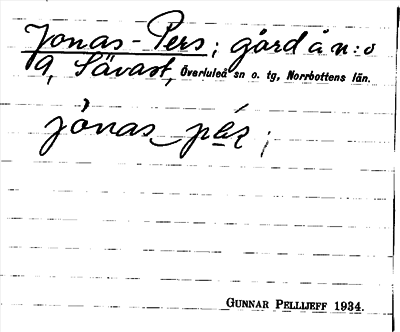 Jonas-Pers; gård å n:o
9, Sävast, Överluleå sn o. tg, Norrbottens län.
jònas pæ̀r;
GUNNAR PELLIJEFF 1934.